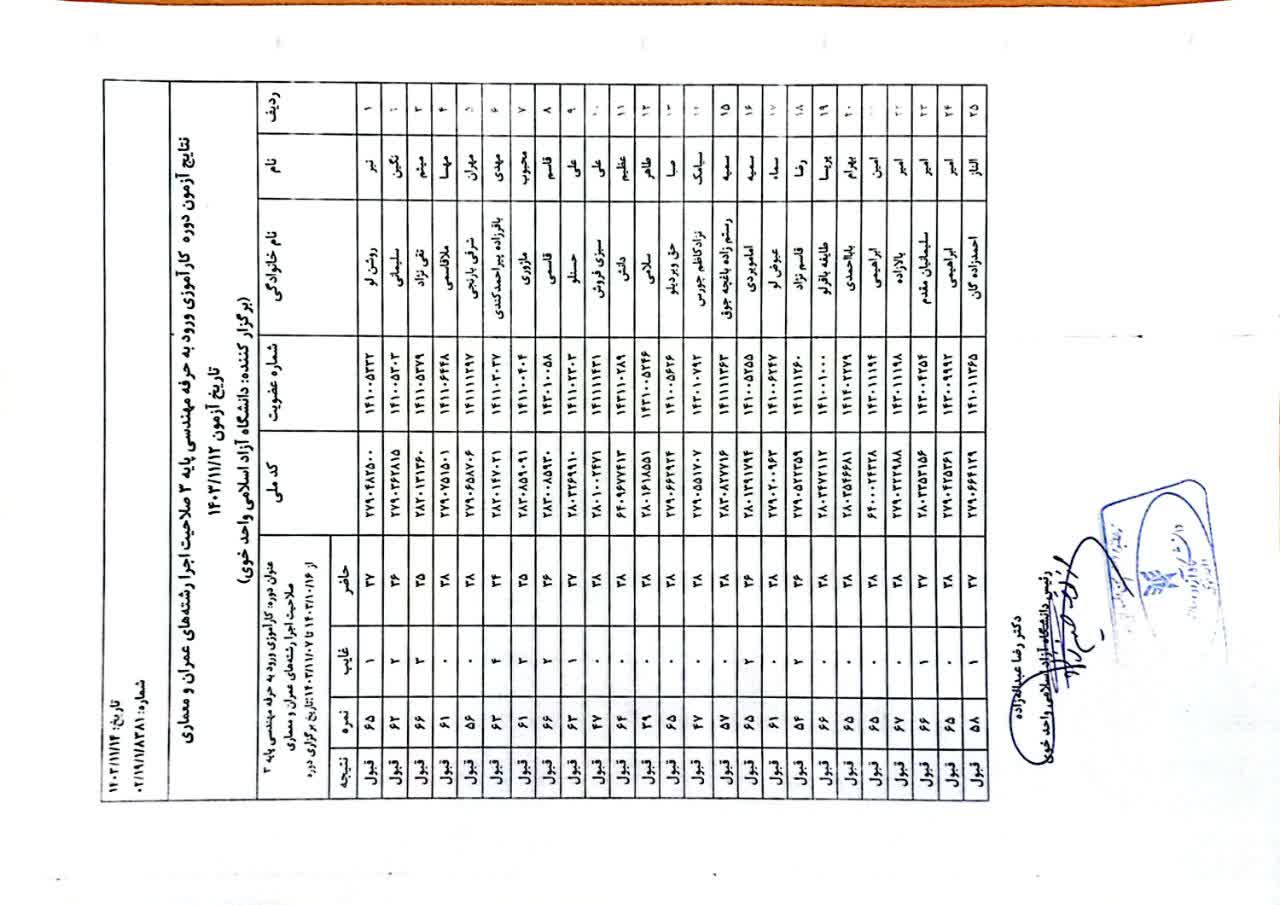 تاریخ: ۱۴۰۳/۱۱/۱۴
شماره: ۰۲/۱۹/۱/۸۳۸۱
نتایج آزمون دوره کارآموزی ورود به حرفه مهندسی پایه ۳ صلاحیت اجرا رشته‌های عمران و معماری
تاریخ آزمون ۱۴۰۳/۱۱/۱۲
(برگزار کننده: دانشگاه آزاد اسلامی واحد خوی)
ردیف نام نام خانوادگی شماره عضویت کد ملی عنوان دوره: کارآموزی ورود به حرفه مهندسی پایه ۳
صلاحیت اجرا رشته‌های عمران و معماری
تاریخ برگزاری دوره: از ۱۴۰۳/۱۰/۱۶ تا ۱۴۰۳/۱۱/۰۷
حاضر غایب نمره نتیجه
۱ نیر روشن لو ۱۴۱۰۰۵۳۳۲ ۲۷۹۰۴۸۲۵۰۰ ۲۷ ۱ ۶۵ قبول
نگین سلیمانی ۱۴۱۰۰۵۳۰۳ ۲۷۹۰۳۶۲۸۱۵ ۲۶ ۲ ۶۲ قبول
۳ میثم نقی نژاد ۱۴۱۱۰۵۳۷۹ ۲۸۲۰۱۳۱۳۶۰ ۲۵ ۳ ۶۶ قبول
۴ مهسا ملاقاسمی ۱۴۱۱۰۶۴۴۸ ۲۷۹۰۷۵۱۵۰۱ ۲۸ ۰ ۶۱ قبول
۵ مهران شرفی یارنجی ۱۴۱۱۱۱۲۹۷ ۲۷۹۰۶۵۸۷۰۶ ۲۸ ۰ ۵۶ قبول
۶ مهدی باقرزاده پیراحمدکندی ۱۴۱۱۰۲۰۳۷ ۲۸۲۰۱۴۷۰۲۱ ۲۴ ۴ ۶۳ قبول
۷ محبوب مازوری ۱۴۱۱۰۰۴۰۴ ۲۸۳۰۸۵۹۰۹۱ ۲۵ ۳ ۶۱ قبول
۸ قاسم قاسمی ۱۴۳۰۱۰۰۵۸ ۲۸۳۰۰۸۵۹۳۰ ۲۶ ۲ ۶۶ قبول
۹ علی حسنلو ۱۴۱۱۰۲۳۰۳ ۲۸۰۳۲۶۹۹۱۰ ۲۷ ۱ ۶۳ قبول
۱۰ علی سبزی فروش ۱۴۱۱۱۱۴۲۱ ۲۸۰۱۰۰۲۴۷۱ ۲۸ ۰ ۴۷ قبول
۱۱ عظیم دانش ۱۴۳۱۱۰۲۸۹ ۶۴۰۹۶۷۴۱۳ ۲۸ ۰ ۶۴ قبول
۱۲ طاهر سلامی ۱۴۳۱۰۰۵۲۴۶ ۲۸۰۱۶۱۸۵۵۱ ۲۸ ۰ ۳۹ قبول
۱۳ صبا حق ویردیلو ۱۴۱۰۰۵۶۲۶ ۲۷۹۰۶۶۲۹۲۴ ۲۸ ۰ ۶۵ قبول
سیامک نژادکاظم جورس ۱۴۳۰۱۰۷۹۲ ۲۷۹۰۵۵۱۷۰۷ ۲۸ ۰ ۴۷ قبول
۱۵ سمیه رستم زاده باغچه جوق ۱۴۱۱۱۱۳۶۳ ۲۸۳۰۸۲۷۷۱۶ ۲۸ ۰ ۵۷ قبول
۱۶ سمیه امامویردی ۱۴۱۰۰۵۲۵۵ ۲۸۰۱۳۹۱۷۹۴ ۲۶ ۲ ۶۵ قبول
۱۷ سماء عیوض لو ۱۴۱۰۰۶۲۴۷ ۲۷۹۰۲۰۰۹۶۳ ۲۸ ۰ ۶۱ قبول
۱۸ رضا قاسم نژاد ۱۴۱۱۱۱۲۶۰ ۲۷۹۰۵۲۲۳۵۹ ۲۶ ۲ ۵۴ قبول
۱۹ پریسا طایفه باقرلو ۱۴۱۰۰۱۰۰۰ ۲۸۰۳۴۷۲۱۱۲ ۲۸ ۰ ۶۶ قبول
۲۰ بهرام بابااحمدی ۱۴۱۴۰۲۲۷۹ ۲۸۰۳۵۴۶۶۸۱ ۲۸ ۰ ۶۵ قبول
امین ابراهیمی ۱۴۳۰۱۱۱۹۴ ۶۴۰۰۰۲۴۳۳۸ ۲۸ ۰ ۶۵ قبول
۲۲ امیر بالازاده ۱۴۳۰۱۱۱۹۸ ۲۷۹۰۳۲۲۹۸۸ ۲۸ ۰ ۶۷ قبول
۲۳ امیر سلیمانیان مقدم ۱۴۳۰۰۴۲۵۴ ۲۸۰۳۲۵۳۱۵۶ ۲۷ ۱ ۶۶ قبول
۲۴ امیر ابراهیمی ۱۴۳۰۰۹۹۹۲ ۲۷۹۰۴۲۵۳۶۱ ۲۸ ۰ ۶۵ قبول
۲۵ الناز احمدزاده گان ۱۴۱۰۱۱۳۶۵ ۲۷۹۰۶۶۴۱۳۹ ۲۷ ۱ ۵۸ قبول
دکتر رضا عبداله‌زاده
رئیس دانشگاه آزاد اسلامی واحد خوی